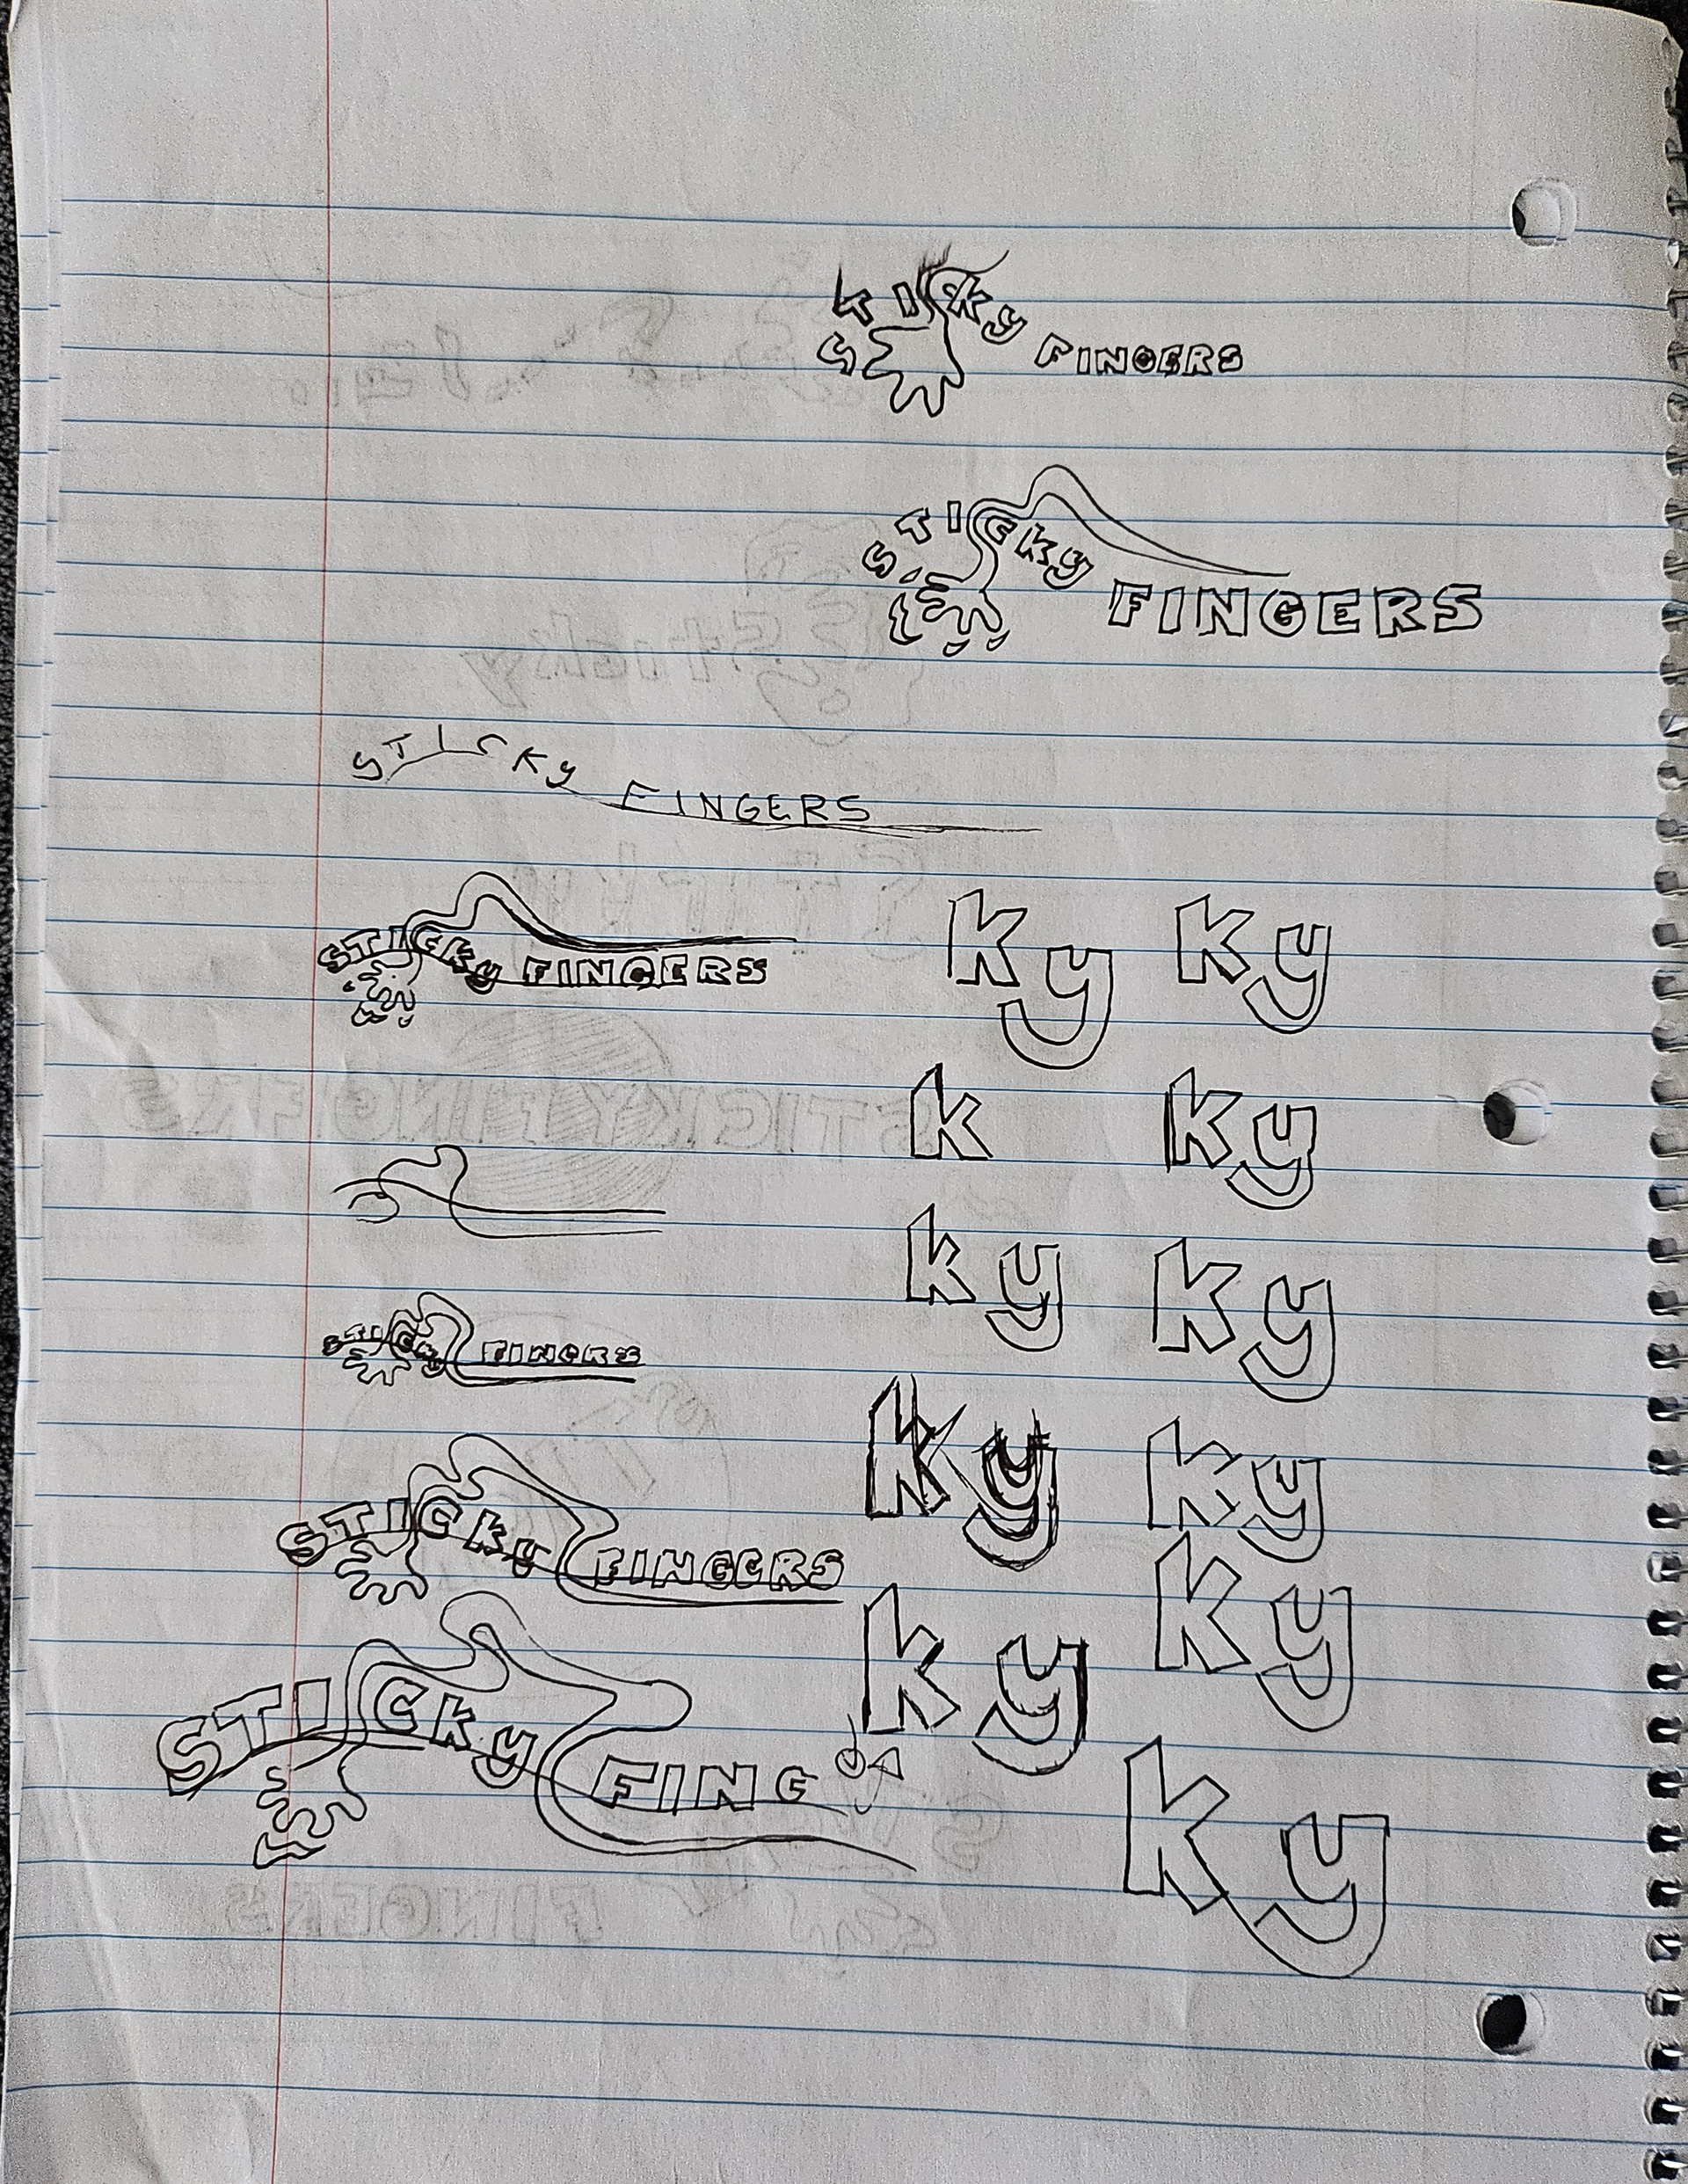 STICKY FINGERS
STICKY FINGERS
STICKY FINGERS
STICKY FINGERS
Ky Ky
K Ky
Ky Ky
STICKY FINGERS
Ky Ky
STICKY FINGERS
Ky Ky
STICKY FING
Ky